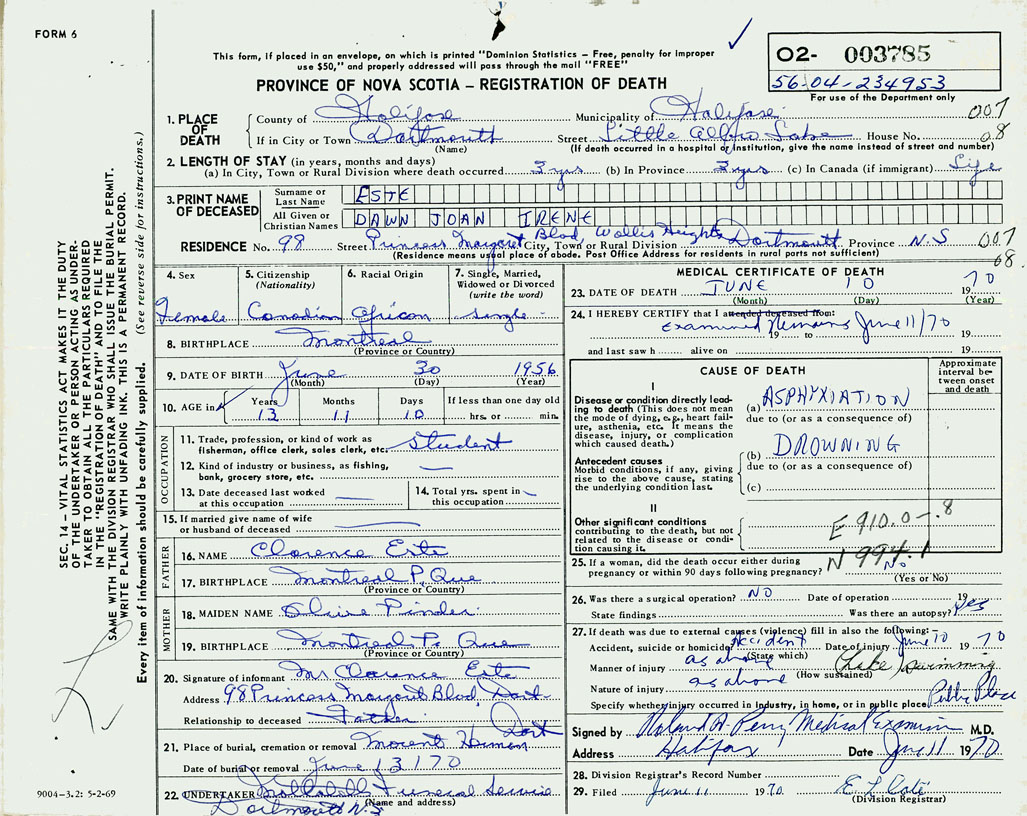 FORM 6
This form, if placed in an envelope, on which is printed "Dominion Statistics – Free, penalty for improper
use $50," and properly addressed will pass through the mail "FREE"
PROVINCE OF NOVA SCOTIA – REGISTRATION OF DEATH
O2- 003785
56-04-234953
For use of the Department only
1. PLACE OF DEATH
County of Halifax Municipality of Halifax 007
If in City or Town Dartmouth Street Little Albro Lake House No. 08
(Name) (If death occurred in a hospital or institution, give the name instead of street and number)
2. LENGTH OF STAY (in years, months and days)
(a) In City, Town or Rural Division where death occurred 3 yrs (b) In Province 3 yrs (c) In Canada (if immigrant) Life
3. PRINT NAME OF DECEASED
Surname or Last Name ESTE
All Given or Christian Names DAWN JOAN IRENE
RESIDENCE No. 98 Street Princess Margaret Blvd Wallis Heights City, Town or Rural Division Dartmouth Province N.S 007
(Residence means usual place of abode. Post Office Address for residents in rural parts not sufficient) 08.
4. Sex Female
5. Citizenship (Nationality) Canadian
6. Racial Origin African
7. Single, Married, Widowed or Divorced (write the word) Single
8. BIRTHPLACE Montreal
(Province or Country)
9. DATE OF BIRTH June 30 1956
(Month) (Day) (Year)
10. AGE in Years 13 Months 11 Days 10 If less than one day hrs. or min.
OCCUPATION
11. Trade, profession, or kind of work as fisherman, office clerk, sales clerk, etc. Student
12. Kind of industry or business, as fishing, bank, grocery store, etc. —
13. Date deceased last worked at this occupation —
14. Total yrs. spent in this occupation —
15. If married give name of wife or husband of deceased —
FATHER
16. NAME Clarence Este
17. BIRTHPLACE Montreal P. Que
(Province or Country)
MOTHER
18. MAIDEN NAME Olive Pinder
19. BIRTHPLACE Montreal P. Que
(Province or Country)
20. Signature of informant Mr Clarence Este
Address 98 Princess Margaret Blvd, Dart
Relationship to deceased Father
21. Place of burial, cremation or removal Mount Hermon Dart
Date of burial or removal June 13 1970
22. UNDERTAKER Funeral Service
(Name and address)
Dartmouth N.S
MEDICAL CERTIFICATE OF DEATH
23. DATE OF DEATH JUNE 10 1970
(Month) (Day) (Year)
24. I HEREBY CERTIFY that I attended deceased from:
Examined Remains June 11/70
19 to 19
and last saw h alive on 19
CAUSE OF DEATH
Approximate interval between onset and death
I
Disease or condition directly leading to death (This does not mean the mode of dying, e.g., heart failure, asthenia, etc. It means the disease, injury, or complication which caused death.)
(a) ASPHYXIATION
due to (or as a consequence of)
Antecedent causes
Morbid conditions, if any, giving rise to the above cause, stating the underlying condition last.
(b) DROWNING
due to (or as a consequence of)
(c)
II
Other significant conditions contributing to the death, but not related to the disease or condition causing it.
E 910.0 -.8
N 994.1
25. If a woman, did the death occur either during pregnancy or within 90 days following pregnancy? No
(Yes or No)
26. Was there a surgical operation? NO Date of operation 19
State findings Was there an autopsy? Yes
27. If death was due to external causes (violence) fill in also the following:
Accident, suicide or homicide? Accident Date of injury June 10 1970
(State which)
Manner of injury as above (Lake) Swimming
(How sustained)
Nature of injury as above
Specify whether injury occurred in industry, in home, or in public place Public Place
Signed by Roland A. Perry Medical Examiner M.D.
Address Halifax Date June 11 1970
28. Division Registrar's Record Number
29. Filed June 11 1970
(Division Registrar)
SEC. 14 – VITAL STATISTICS ACT MAKES IT THE DUTY
OF THE UNDERTAKER OR PERSON ACTING AS UNDER-
TAKER TO OBTAIN ALL THE PARTICULARS REQUIRED
IN THE "REGISTRATION OF DEATH" AND TO FILE THE
SAME WITH THE DIVISION REGISTRAR WHO SHALL ISSUE THE BURIAL PERMIT.
WRITE PLAINLY WITH UNFADING INK. THIS IS A PERMANENT RECORD.
Every item of information should be carefully supplied. (See reverse side for instructions.)
9004-3.2: 5-2-69